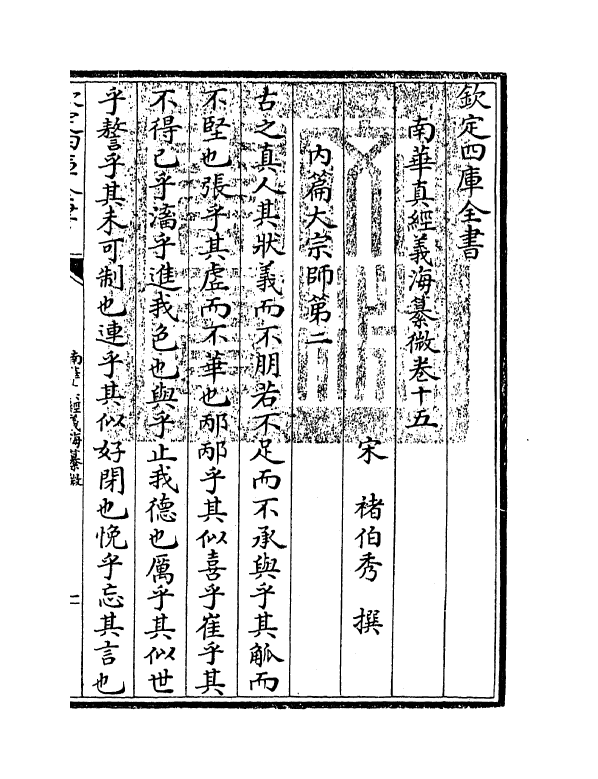 欽定四庫全書
南華真經義海纂微卷十五
宋 褚伯秀 撰
内篇大宗師第二
古之真人其狀義而不朋若不足而不承與乎其觚而
不堅也張乎其虚而不華也邴邴乎其似喜乎崔乎其
不得已乎滀乎進我色也與乎止我德也厲乎其似世
乎謷乎其未可制也連乎其似好閉也悗乎忘其言也